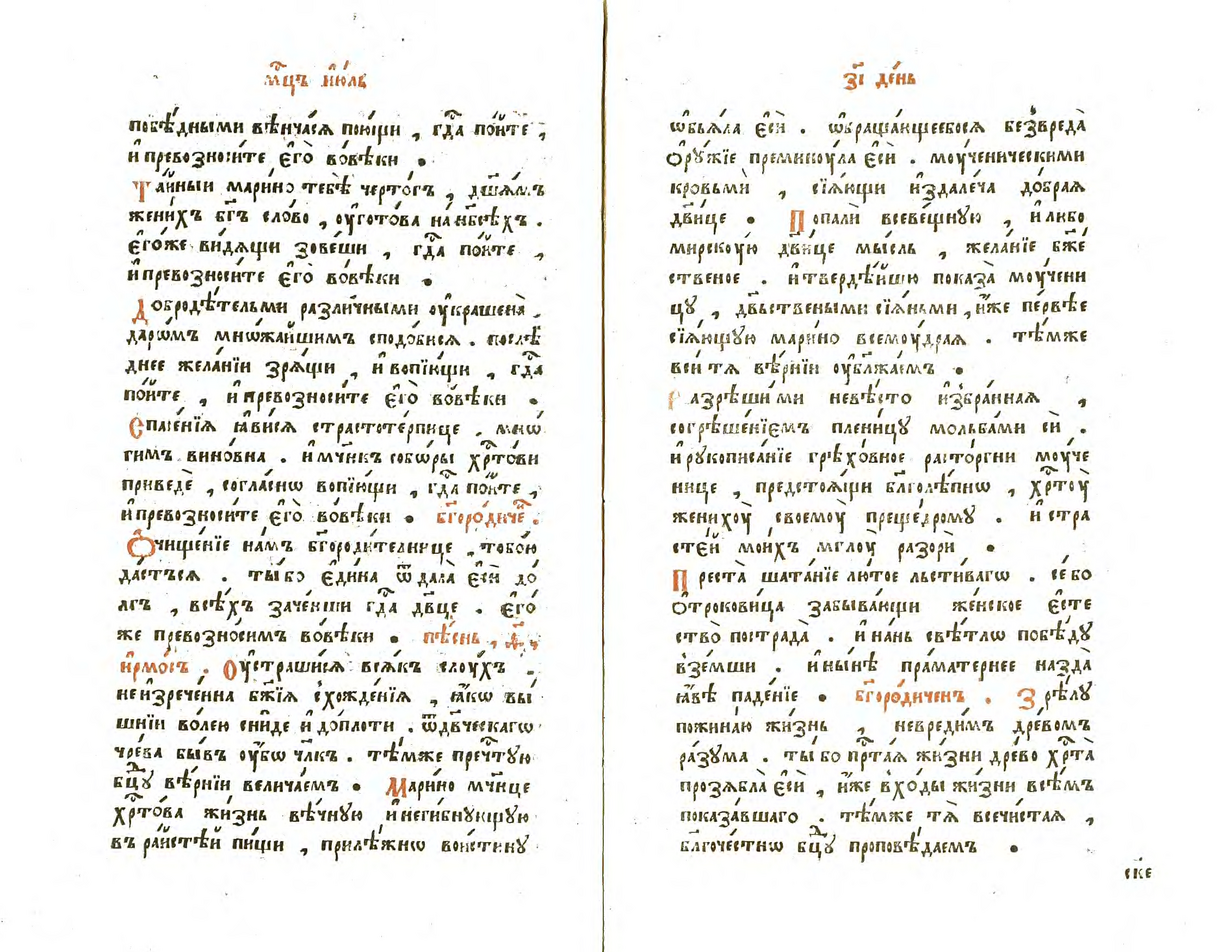 мц҃ъ ию́ль
побѣ́дными вѣнча́сѧ пою́щи , гд҇а по́йте ,
и҆ превозноси́те є҆го̀ во́вѣки .
Та́йныи марино тебѣ̀ черто́гъ , дш҃а́мъ
жени́хъ бг҃ъ сло́во , ᲂу҆гото́ва на нб҃сѣ́хъ .
є҆го́же ви́дѧщи зове́ши , гд҇а по́йте ,
и҆ превозноси́те є҆го̀ во́вѣки .
Добродѣ́тельми разли́чными ᲂу҆кра́шена ,
даро́мъ мно́жайшимъ сподо́бисѧ . послѣ́
днее жела́нїи зрѧ́щи , и҆ вопїю́щи , гд҇а
по́йте , и҆ превозноси́те є҆го̀ во́вѣки .
Спасе́нїѧ ꙗ҆ви́сѧ страстоте́рпице , мно́
гимъ вино́вна . и҆ мч҃никъ собо́ры хр҇то́ви
приведѐ , согла́снѡ вопїю́щи , гд҇а по́йте ,
и҆ превозноси́те є҆го̀ во́вѣки . бг҃оро́диче҇ .
Ѻ҆чище́нїе на́мъ бг҃ороди́телнице , тобо́ю
да́стъсѧ . ты́ бо є҆ди́на ѿдала̀ є҆сѝ до́
лгъ , всѣ́хъ заче́нши гд҇а дв҃це . є҆го́
же превозно́симъ во́вѣки . пѣ́снь , ѳ҃ ,
і҆рмо́съ . Оу҆страши́сѧ всѧ́къ слꙋ́хъ ,
неи҆зрече́нна бж҃їѧ схожде́нїѧ , ꙗ҆́кѡ вы́
шнїи во́лею сни́де и҆ до пло́ти . ѿ дв҃ческагѡ
чре́ва бы́въ ᲂу҆́бѡ чл҃къ . тѣ́мже преч҇тую
бц҃у вѣ́рнїи велича́емъ . Марино мч҃нице
хр҇то́ва жи́знь вѣ́чную и҆ неги́бнущую
въ ра́йстѣй пи́щи , прилѣ́жнѡ вои́стину
з҃і де́нь
ѡ҆бъѧ́ла є҆сѝ . ѡ҆браща́ющеебосѧ без̾вреда̀
ѻ҆рꙋ́жїе премину́ла є҆сѝ . моу́ченическими
кровьмѝ , сїѧ́ющи и҆здале́ча до́браѧ
дв҃ице . Попалѝ всеве́щную , и҆ либо
мирскоу́ю дв҃ице мы́сль , жела́нїе бж҃е́
ственое . и҆ тверде́йшю показа̀ моу́чени
цу , дв҃ьствеными сїѧ́ньми , и҆́же пе́рвѣе
сїѧ́ющую марино всемоу́драѧ . тѣ́мже
всѝ тѧ̀ вѣ́рнїи ᲂу҆бл҃жа́емъ .
Разрѣши́ ми невѣ́сто и҆збра́ннаѧ ,
согрѣше́нїемъ пле́ницу мольба́ми сѝ .
и҆ рукописа́нїе грѣхо́вное расто́ргни моу́че
нице , предстоѧ́щи бл҃голѣ́пнѡ , хр҇тоу̀
женихоу̀ своемоу̀ преще́дрому . и҆ стра
сте́й мои́хъ мглоу̀ разорѝ .
Преста̀ шата́нїе лю́тое льсти́вагѡ . се́ бо
ѻ҆трокови́ца забыва́ющи же́нское є҆сте
ство̀ пострада̀ . и҆ на́нь свѣ́тлѡ побѣ́ду
взе́мши . и҆ ны́нѣ прама́тернее назда̀
ꙗ҆́вѣ паде́нїе . бг҃оро́диченъ . Зрѣ́лу
пожина́ю жи́знь , невреди́мъ дре́вомъ
ра́зума . ты́ бо пр҇та́ѧ жи́зни дре́во хр҇та̀
прозѧбла̀ є҆сѝ , и҆́же вхо́ды жи́зни всѣ́мъ
показа́вшаго . тѣ́мже тѧ̀ всечи́стаѧ ,
бл҃гоче́стнѡ бц҃у проповѣ́даемъ .
ск҃е